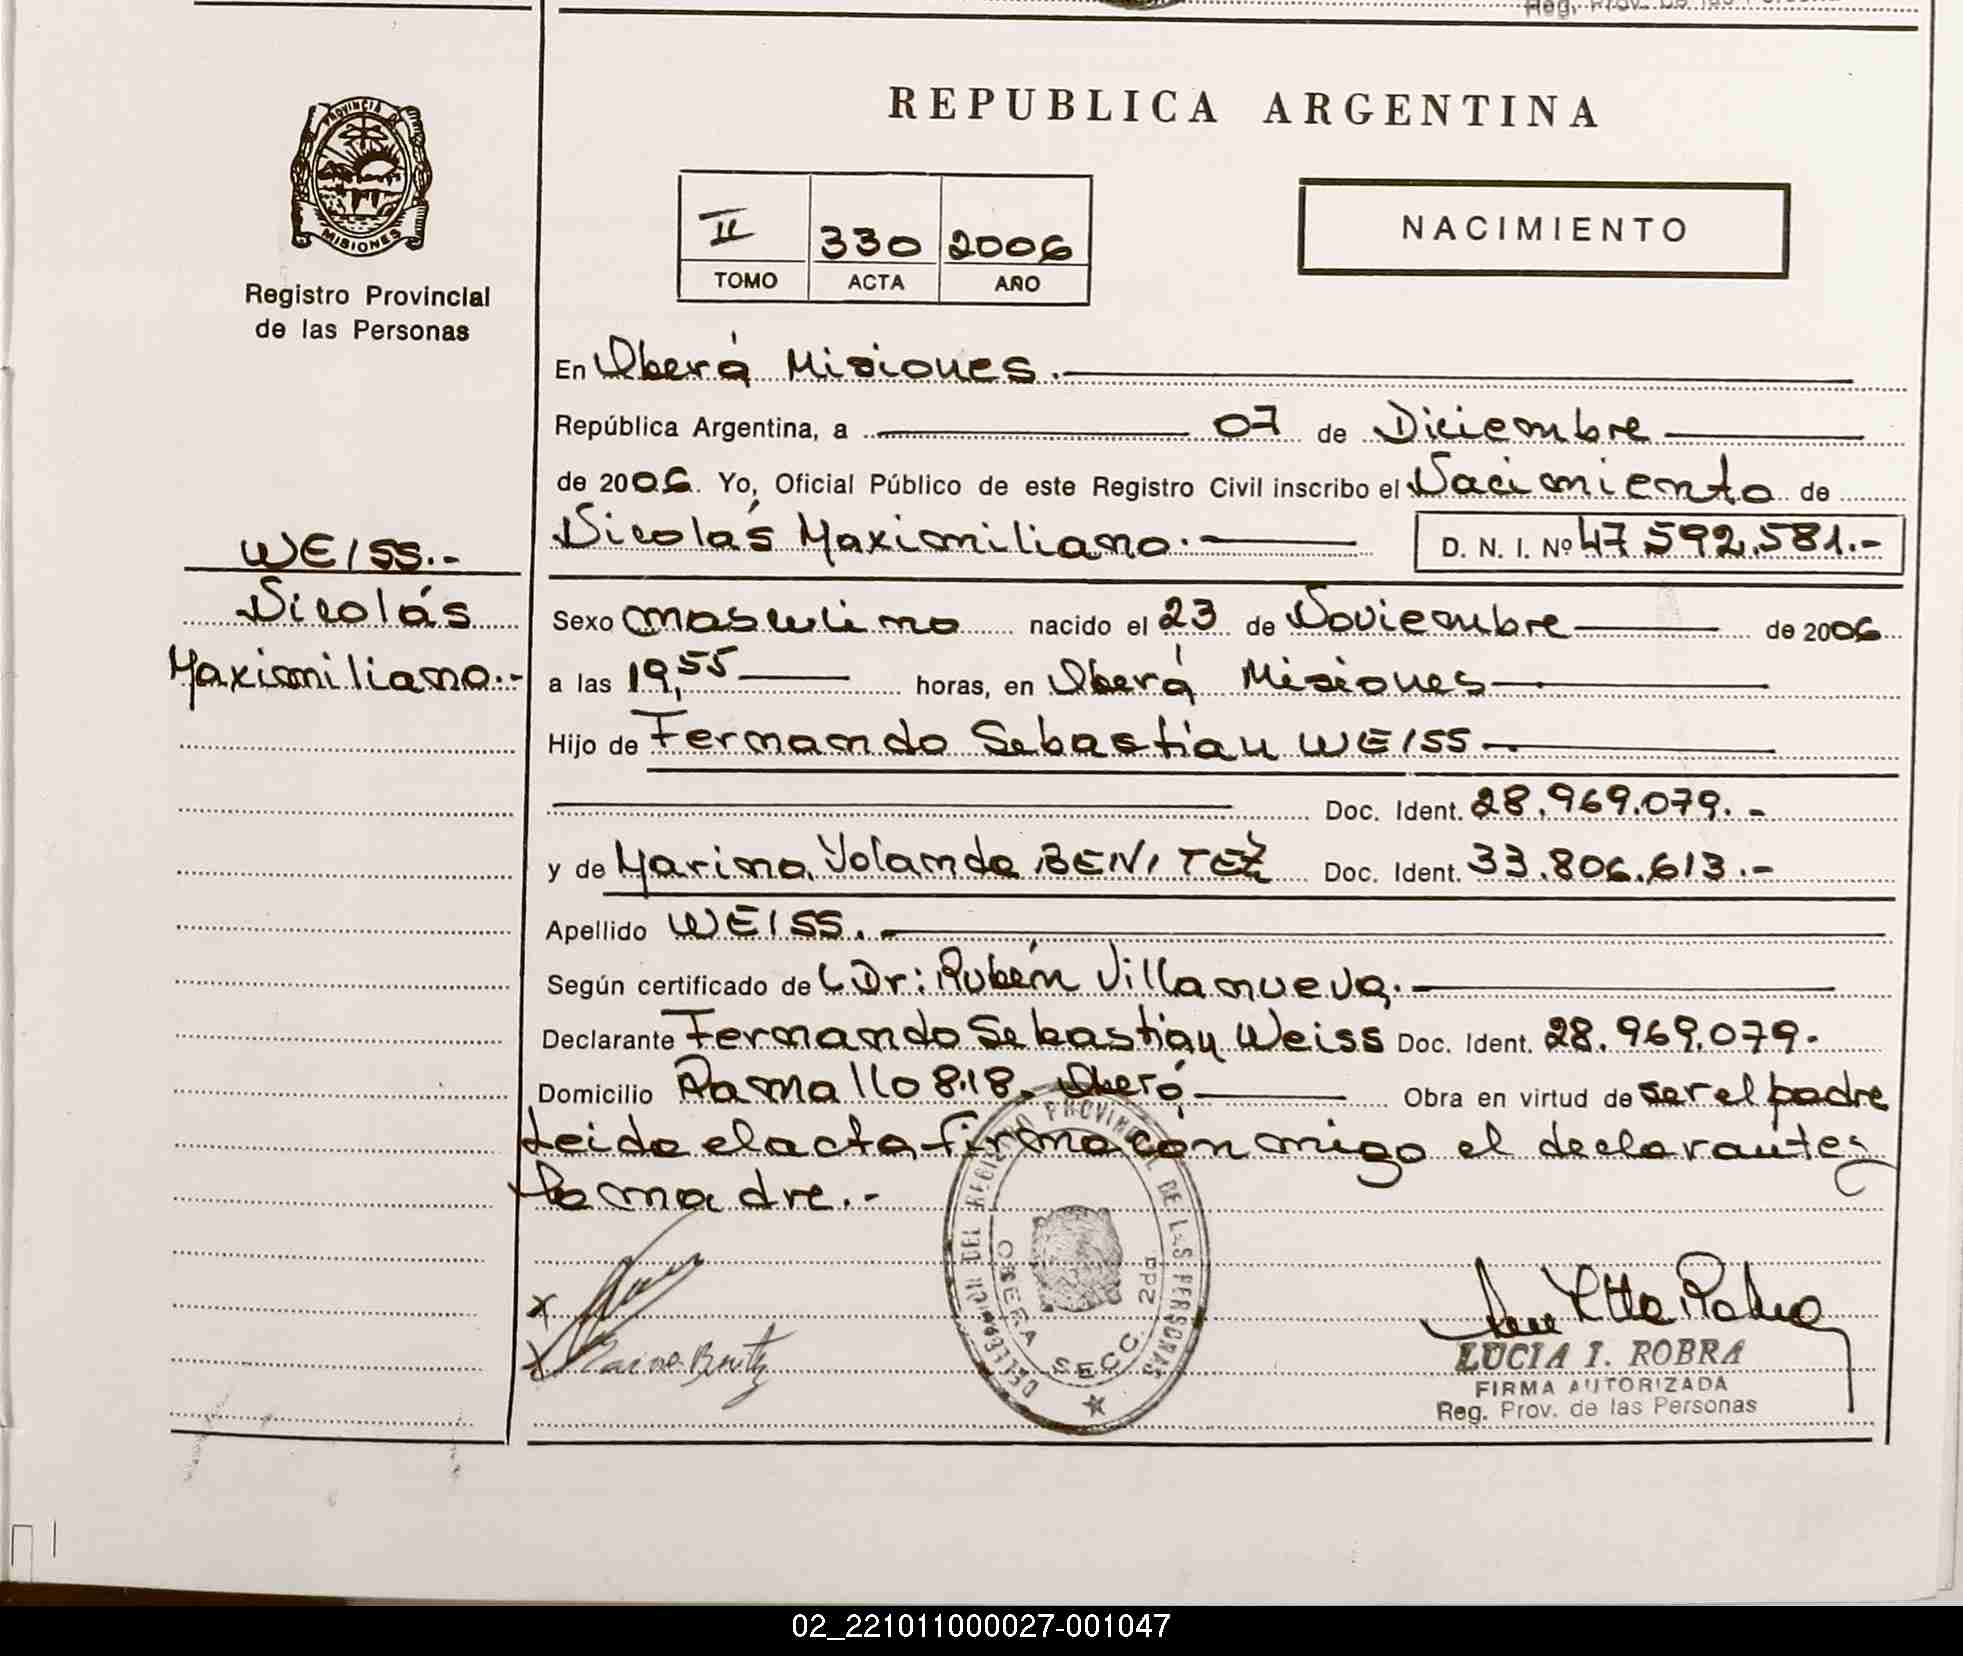 Reg. Prov. de las Persona
PROVINCIA DE
MISIONES
Registro Provincial
de las Personas
REPUBLICA ARGENTINA
II 330 2006
TOMO ACTA AÑO
NACIMIENTO
En Oberá Misiones.
República Argentina, a 07 de Diciembre
de 2006. Yo, Oficial Público de este Registro Civil inscribo el Nacimiento de
Nicolás Maximiliano.- D. N. I. Nº 47.592.581.-
WEISS.-
Nicolás
Maximiliano.-
Sexo masculino nacido el 23 de Noviembre de 2006
a las 19,55 horas, en Oberá Misiones
Hijo de Fernando Sebastian WEISS
Doc. Ident. 28.969.079.-
y de Marina Yolanda BENITEZ Doc. Ident. 33.806.613.-
Apellido WEISS.
Según certificado de Dr: Rubén Villanueva.
Declarante Fernando Sebastian Weiss Doc. Ident. 28.969.079.
Domicilio Ramallo 818. Oberá Obra en virtud de ser el padre
Leida el acta firma conmigo el declarante y
la madre.-
DELEGACION DEL REGISTRO PROVINCIAL DE LAS PERSONAS
OBERA SECC. 2da
x
x Marina Benitez
LUCIA I. ROBRA
FIRMA AUTORIZADA
Reg. Prov. de las Personas
02_221011000027-001047